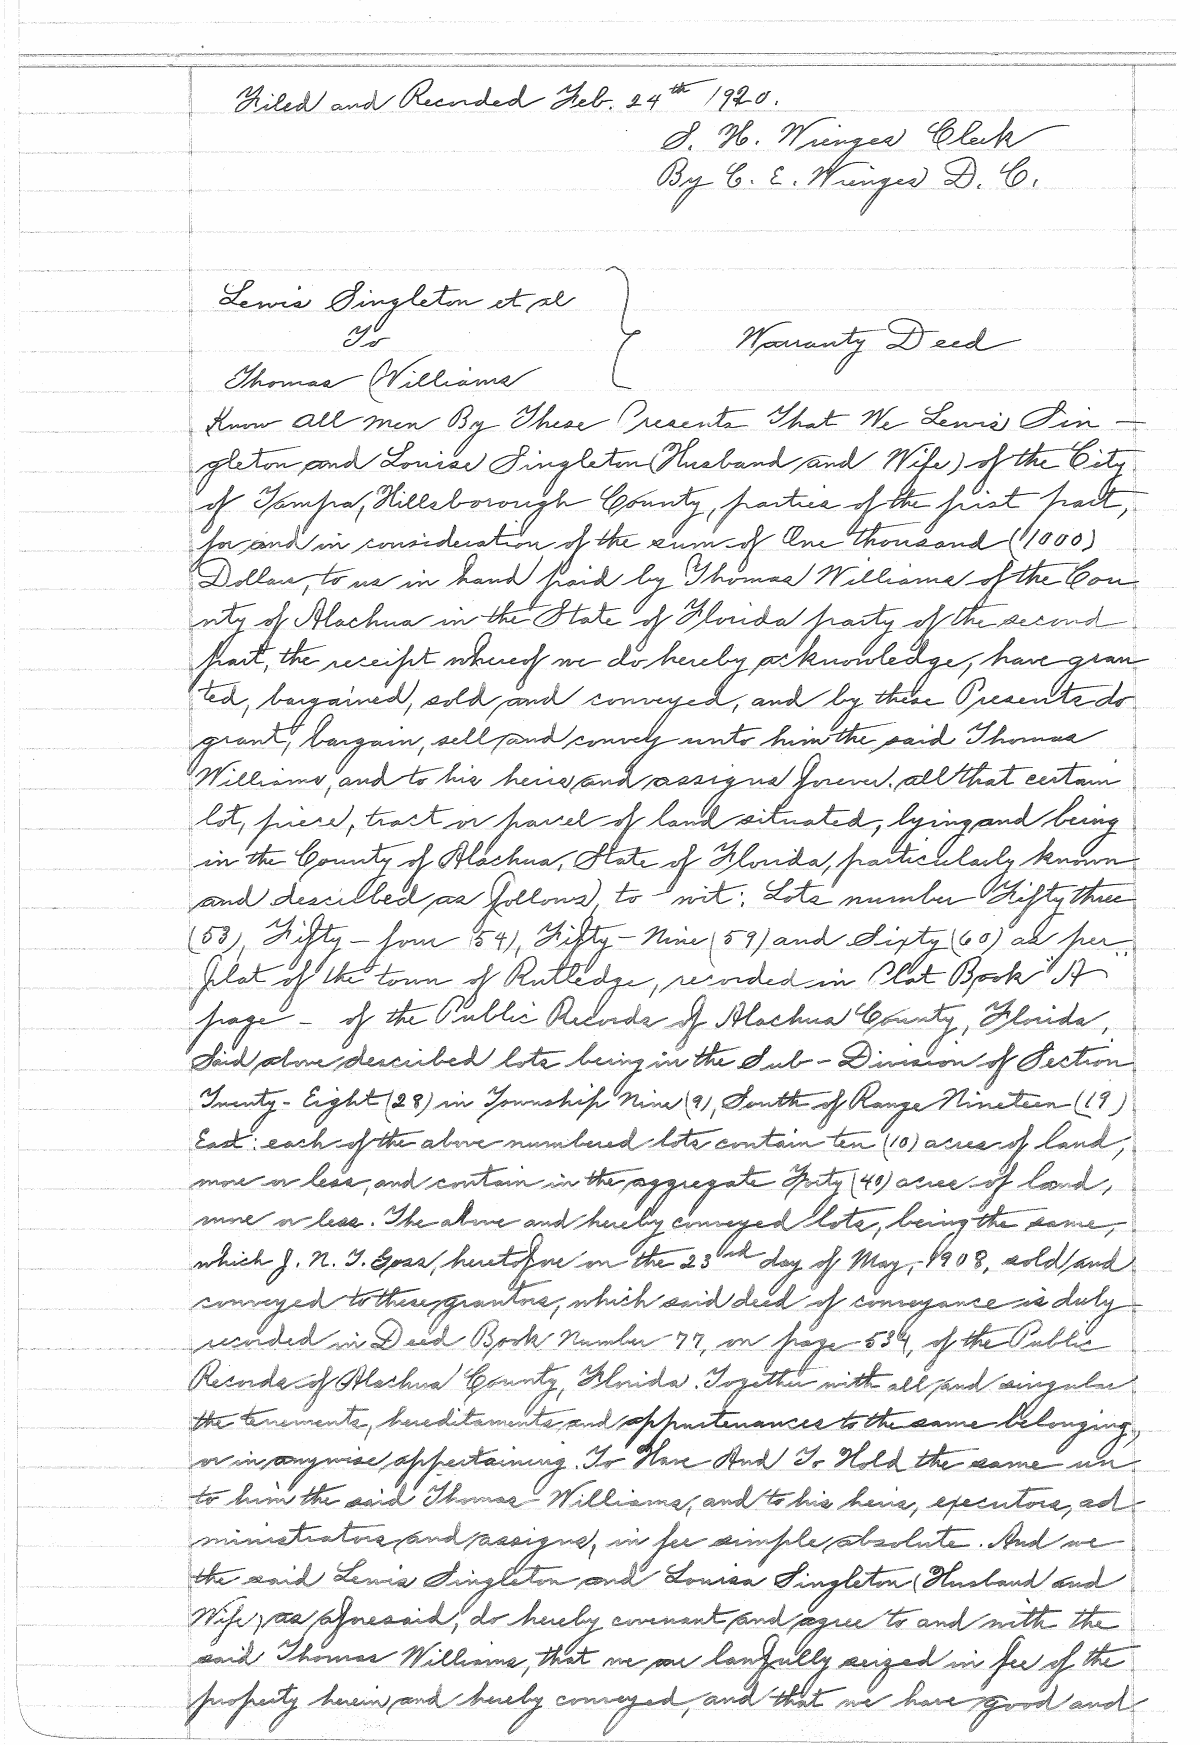 Filed and Recorded Feb. 24th 1920.
S. H. Wienges Clerk
By C. E. Wienges D. C.
Lewis Singleton et al
To
Warranty Deed
Thomas Williams
Know All Men By These Presents That We Lewis Sin –
gleton and Louise Singleton (Husband and Wife) of the City
of Tampa, Hillsborough County, parties of the first part,
for and in consideration of the sum of One thousand (1000)
Dollars, to us in hand paid by Thomas Williams of the Cou
nty of Alachua in the State of Florida party of the second
part, the receipt whereof we do hereby acknowledge, have gran
ted, bargained, sold and conveyed, and by these Presents do
grant, bargain, sell and convey unto him the said Thomas
Williams, and to his heirs and assigns forever. all that certain
lot, piece, tract or parcel of land situated, lying and being
in the County of Alachua, State of Florida, particularly known
and described as follows, to - wit: Lots number Fifty three
(53), Fifty – four (54), Fifty – Nine (59) and Sixty (60) as per
plat of the town of Rutledge, recorded in Plat Book "A"
page – of the Public Records of Alachua County, Florida,
Said above described lots being in the Sub – Division of Section
Twenty - Eight (28) in Township Nine (9), South of Range Nineteen (19)
East: each of the above numbered lots contain ten (10) acres of land,
more or less, and contain in the aggregate Forty (40) acres of land,
more or less. The above and hereby conveyed lots, being the same,
which J. N. T. Goss, heretofore on the 23rd day of May, 1908, sold and
conveyed to these grantors, which said deed of conveyance is duly
recorded in Deed Book Number 77, on page 534, of the Public
Records of Alachua County, Florida. Together with all and singular
the tenements, hereditaments and appurtenances to the same belonging,
or in anywise appertaining. To Have And To Hold the same un
to him the said Thomas Williams, and to his heirs, executors, ad
ministrators and assigns, in fee simple absolute. And we
the said Lewis Singleton and Louisa Singleton (Husband and
Wife) as aforesaid, do hereby covenant and agree to and with the
said Thomas Williams, that we are lawfully seized in fee of the
property herein and hereby conveyed, and that we have good and